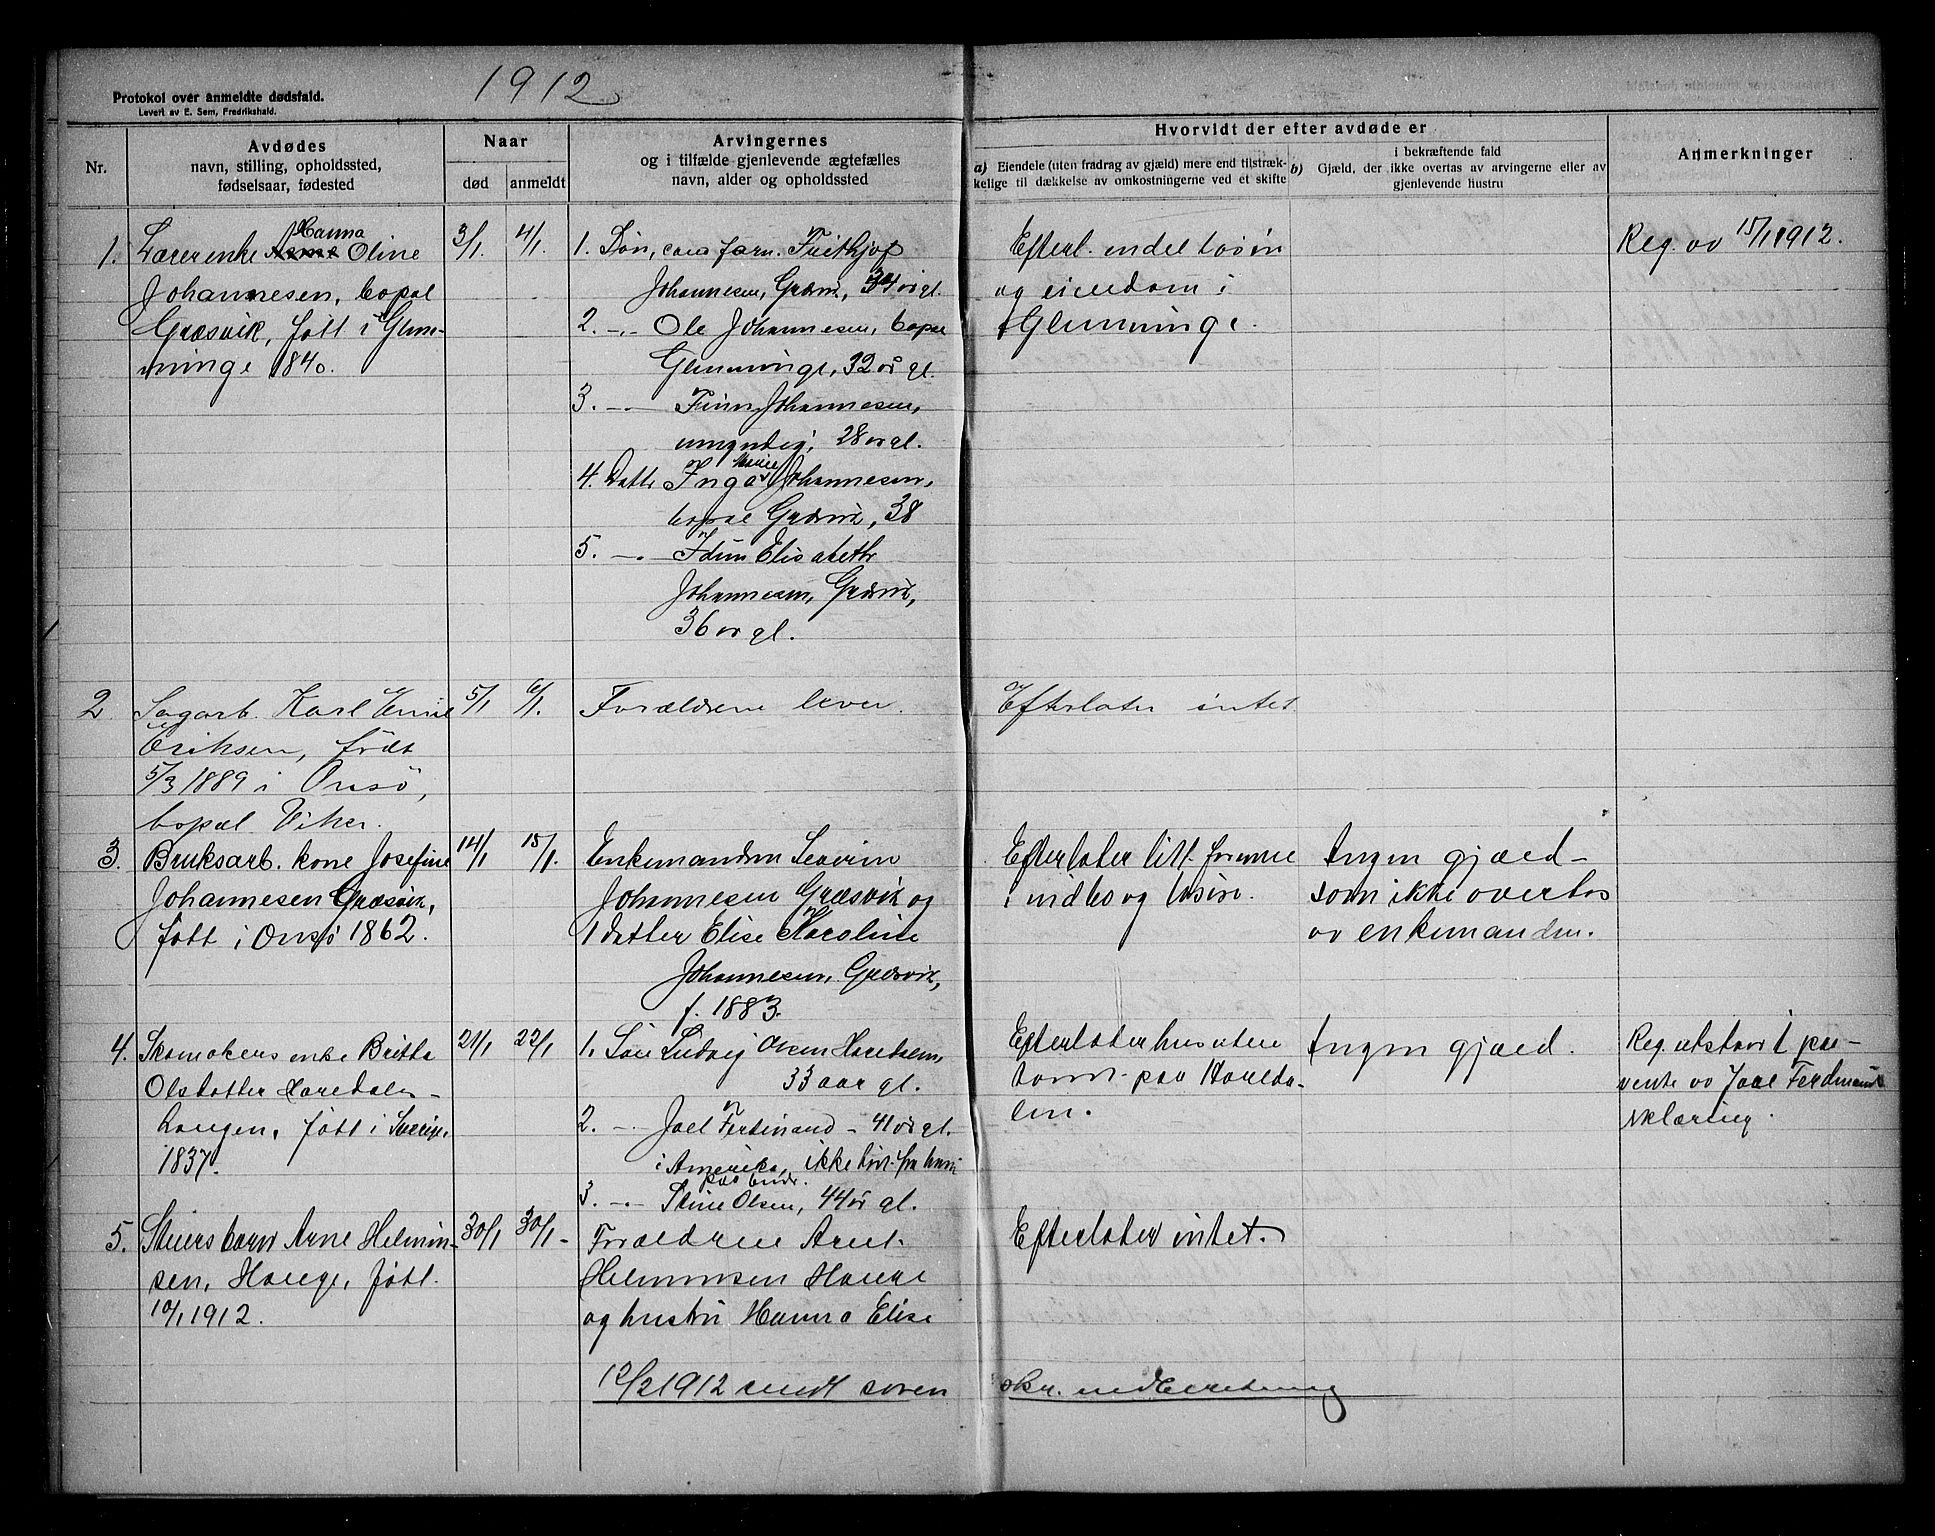 1912
Protokol over anmeldte dødsfald.
Levert av E. Sem, Fredrikshald.
Nr.
Avdødes
navn, stilling, opholdssted,
fødselsaar, fødested
Naar
død
anmeldt
Arvingernes
og i tilfælde gjenlevende ægtefælles
navn, alder og opholdssted
Hvorvidt der efter avdøde er
a) Eiendele (uten fradrag av gjæld) mere end tilstræk-
kelige til dækkelse av omkostningerne ved et skifte
b) Gjæld, der i bekræftende fald ikke overtas av arvingerne eller av
gjenlevende hustru
Anmerkninger
1. Lærerenke Hanna Oline
Johannesen, bopæl
Græsvik, født i Glem-
minge 1840.
3/1 4/1.
1. Søn, Frithjof
Johannesen, Græsvik, 34 år gl.
2. -"- Ole Johannesen, bopæl
Glemminge, 32 år gl.
3. -"- Finn Johannesen,
umyndig, 28 år gl.
4. Datter Inga Marie Johannesen,
bopæl Græsvik, 38
5. -"- Idun Elisabeth
Johannesen, Græsvik,
36 år gl.
Efterl. endel løsøre
og eiendom i
Glemminge.
Reg. av 15/1 1912.
2 Sagarb. Karl Emil
Eriksen, født
5/3 1889 i Onsø,
bopæl Viker.
5/1 6/1.
Forældrene lever.
Efterlater intet.
3. Bruksarb. kone Josefine
Johannesen Græsvik,
født i Onsø 1862.
14/1 15/1.
Enkemanden Severin
Johannesen Græsvik og
1 datter Elise Karoline
Johannesen, Græsvik,
f. 1883.
Efterlater litt formue
i indbo og løsøre.
Ingen gjæld
som ikke overtas
av enkemanden.
4. Skomakers enke Britta
Olsdatter Haredalen
Langen, født i Sverige,
1837.
21/1 22/1
1. Søn Ludvig Olsen Haredalen,
33 aar gl.
2. -"- Joel Ferdinand - 41 år gl.
i Amerika, ikke
3. -"- Stine Olsen, 44 år gl.
Efterlater hus uten
tomt paa Hareda-
len.
Ingen gjæld.
Reg. utstaar i paa-
vente av Joel Ferdinands
erklæring.
5. Stuers barn Arne Helmin-
sen, Hauge, født
10/1 1912.
30/1 30/1-
Forældrene Arnt
Helminsen Hauge
og hustru Hanna Elise
Efterlater intet.
12/2 1912 sendt soren
skr. indberetning